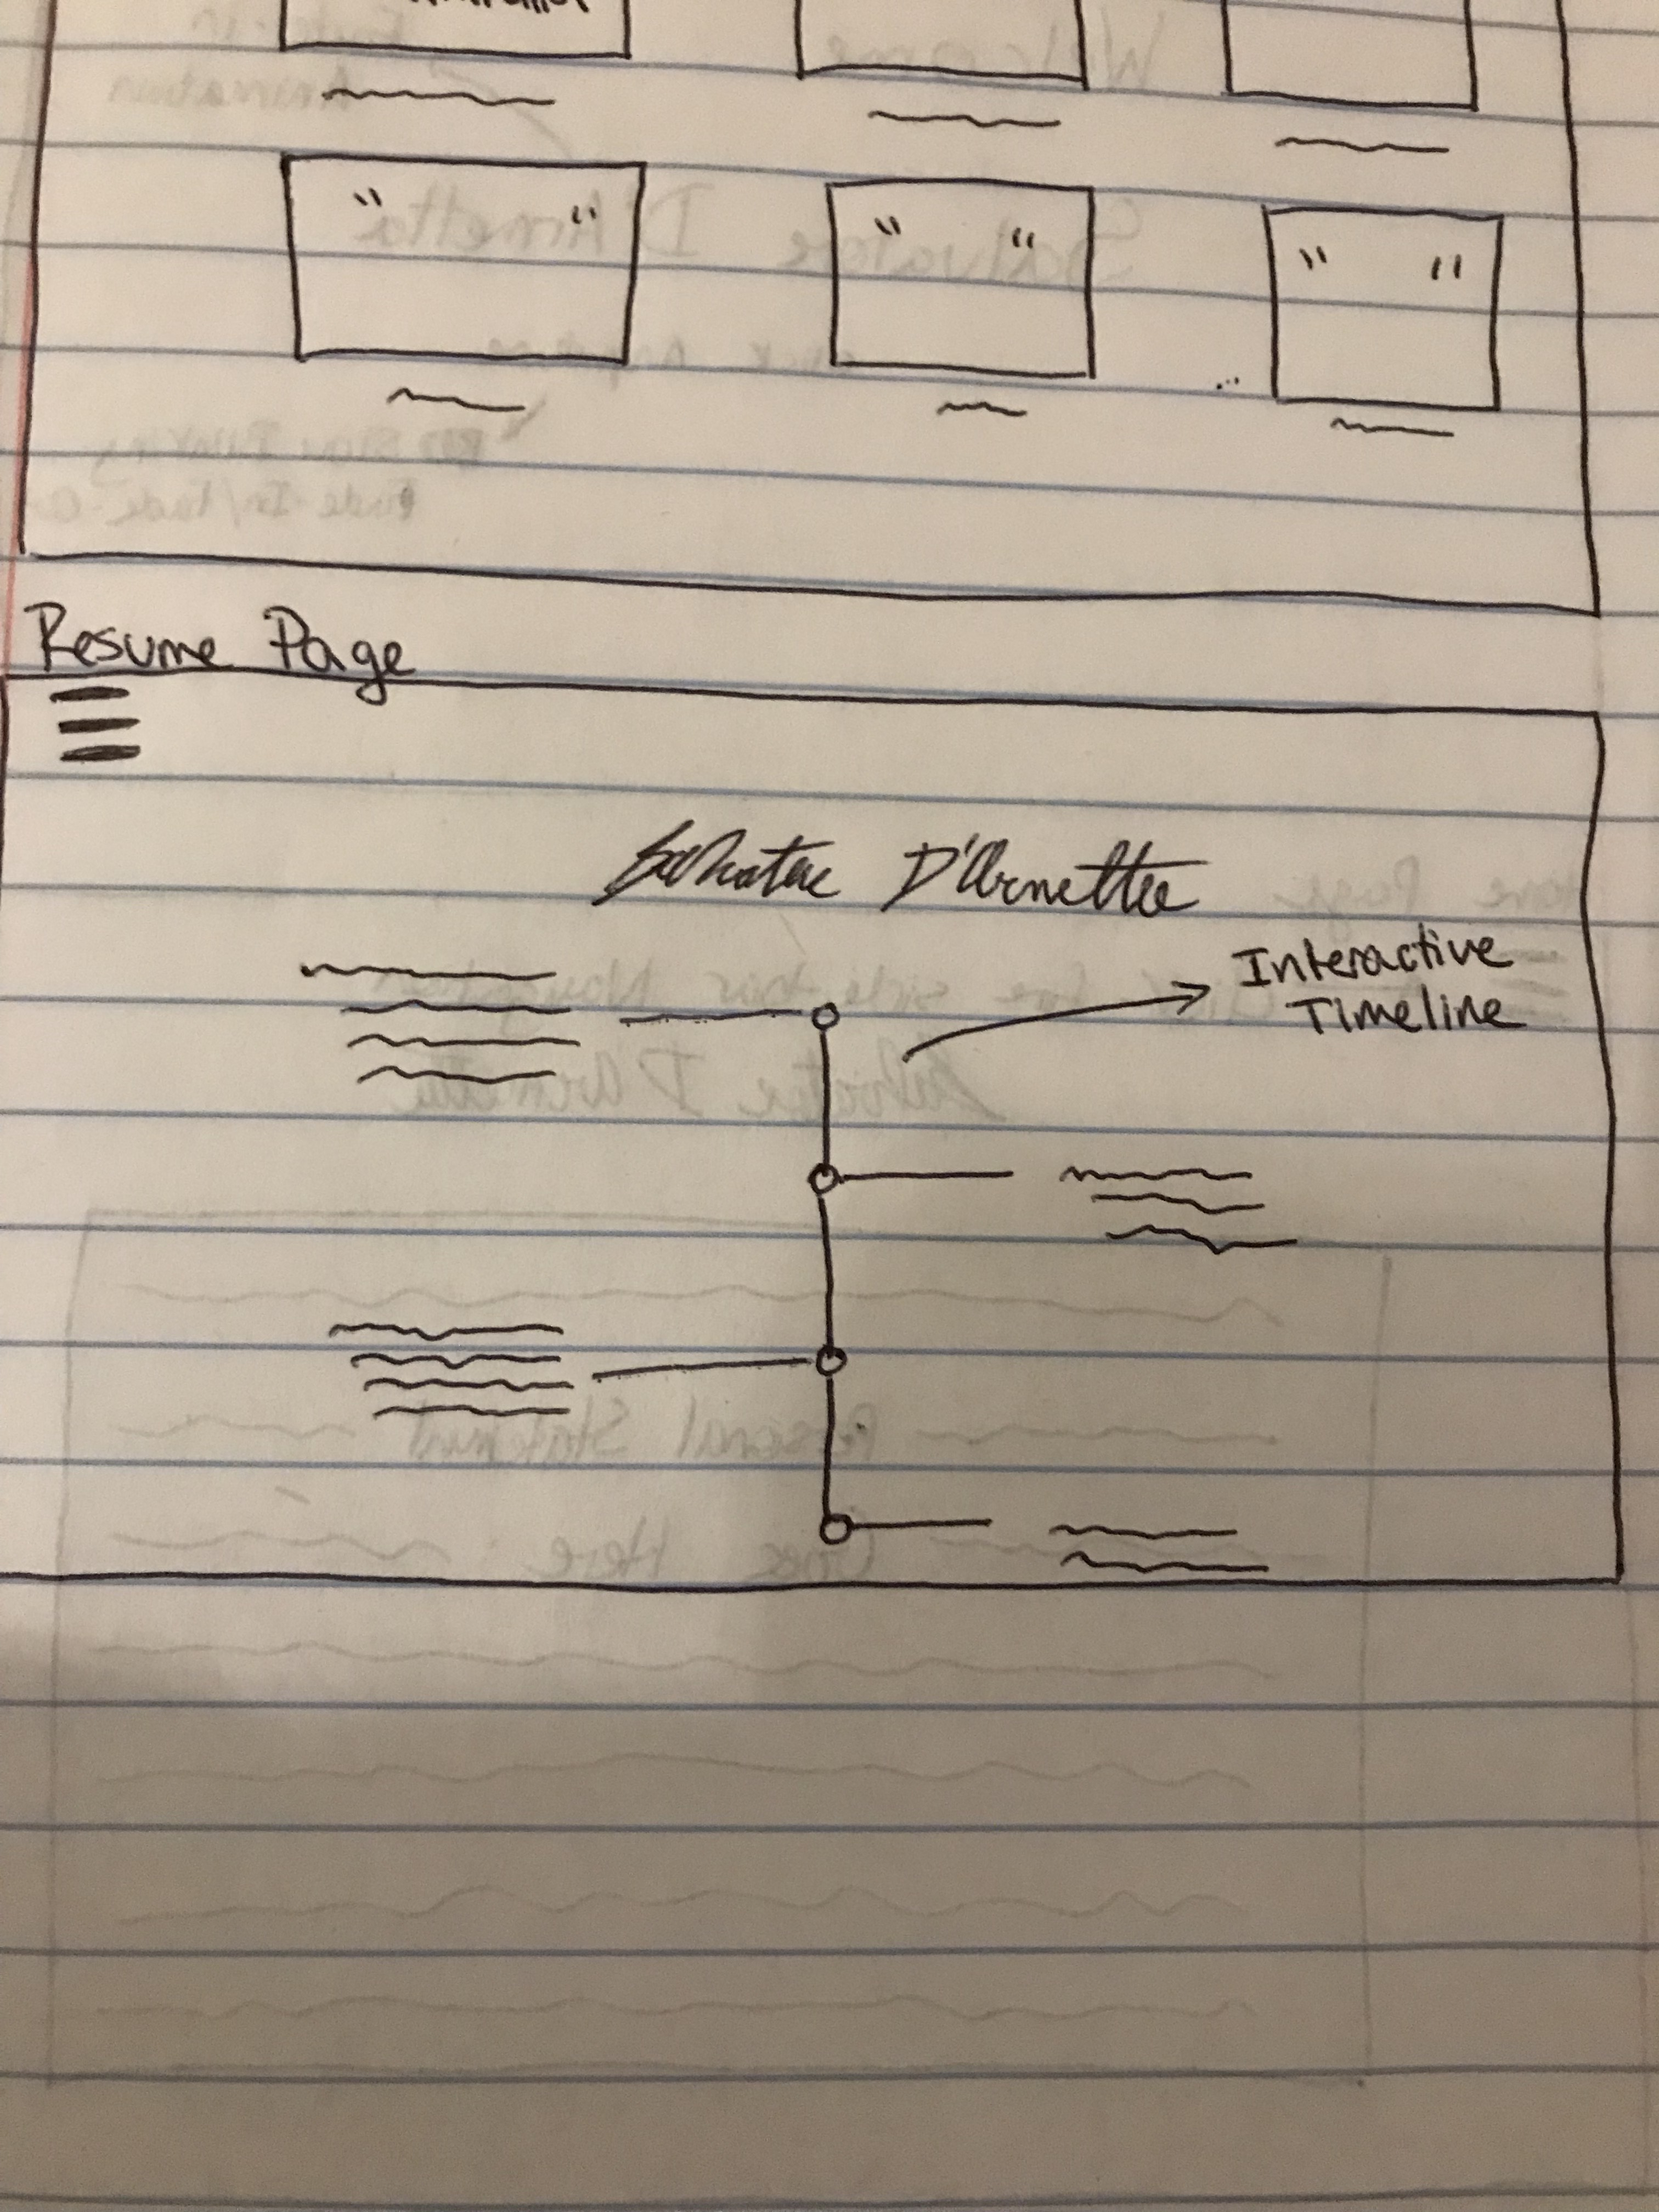 " " " " " "
Resume Page
Salvatore D'Armetta
Interactive
Timeline